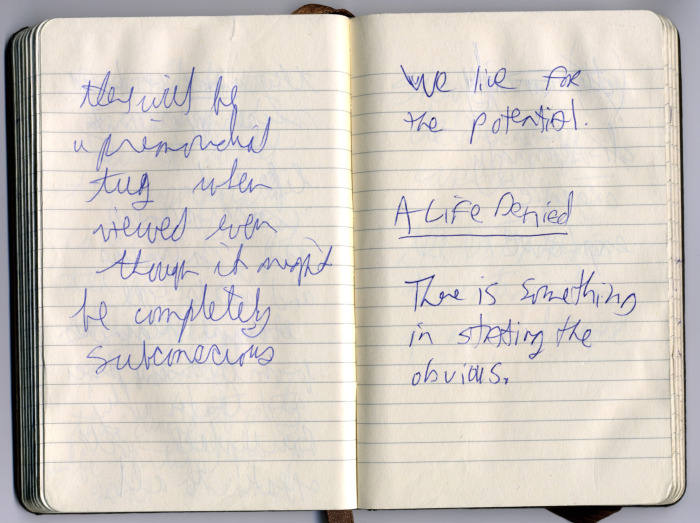 they will be
a primordial
tug when
viewed even
though it might
be completely
subconscious
We live for
the potential.
A Life Denied
There is something
in stating the
obvious.